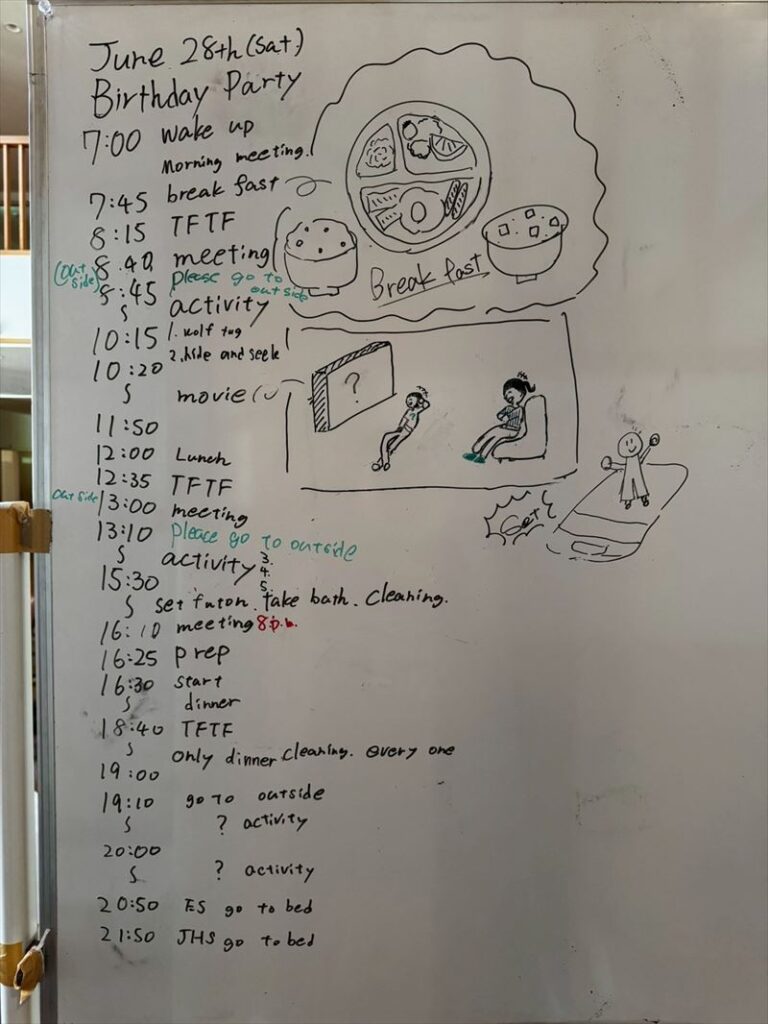 June 28th (Sat)
Birthday Party
7:00 wake up
Morning meeting.
7:45 break fast
8:15 TFTF
8:40 meeting
(out side) please go to outside
8:45
activity
10:15 1. wolf tag
2. hide and seek
10:20
movie
11:50
12:00 Lunch
12:35 TFTF
out side 13:00 meeting
13:10 please go to outside
activity 3.
4.
5.
15:30
set futon. take bath. Cleaning.
16:10 meeting
16:25 prep
16:30 start
dinner
18:40 TFTF
only dinner cleaning. every one
19:00
19:10 go to outside
? activity
20:00
? activity
20:50 ES go to bed
21:50 JHS go to bed
Break fast
?
Get